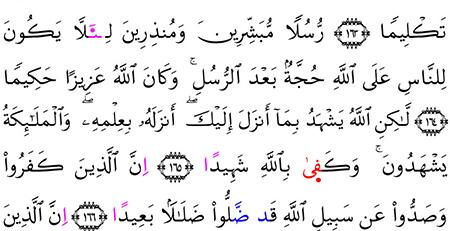 تَكْلِيمًا ۝١٦٣ رُّسُلًا مُّبَشِّرِينَ وَمُنذِرِينَ لِئَلَّا يَكُونَ
لِلنَّاسِ عَلَى اللَّهِ حُجَّةٌۢ بَعْدَ الرُّسُلِ ۚ وَكَانَ اللَّهُ عَزِيزًا حَكِيمًا
۝١٦٤ لَّٰكِنِ اللَّهُ يَشْهَدُ بِمَآ أَنزَلَ إِلَيْكَ ۖ أَنزَلَهُۥ بِعِلْمِهِۦ ۖ وَالْمَلَٰٓئِكَةُ
يَشْهَدُونَ ۚ وَكَفَىٰ بِاللَّهِ شَهِيدًا ۝١٦٥ اِنَّ الَّذِينَ كَفَرُوا۟
وَصَدُّوا۟ عَن سَبِيلِ اللَّهِ قَد ضَّلُّوا۟ ضَلَٰلًۢا بَعِيدًا ۝١٦٦ اِنَّ الَّذِينَ